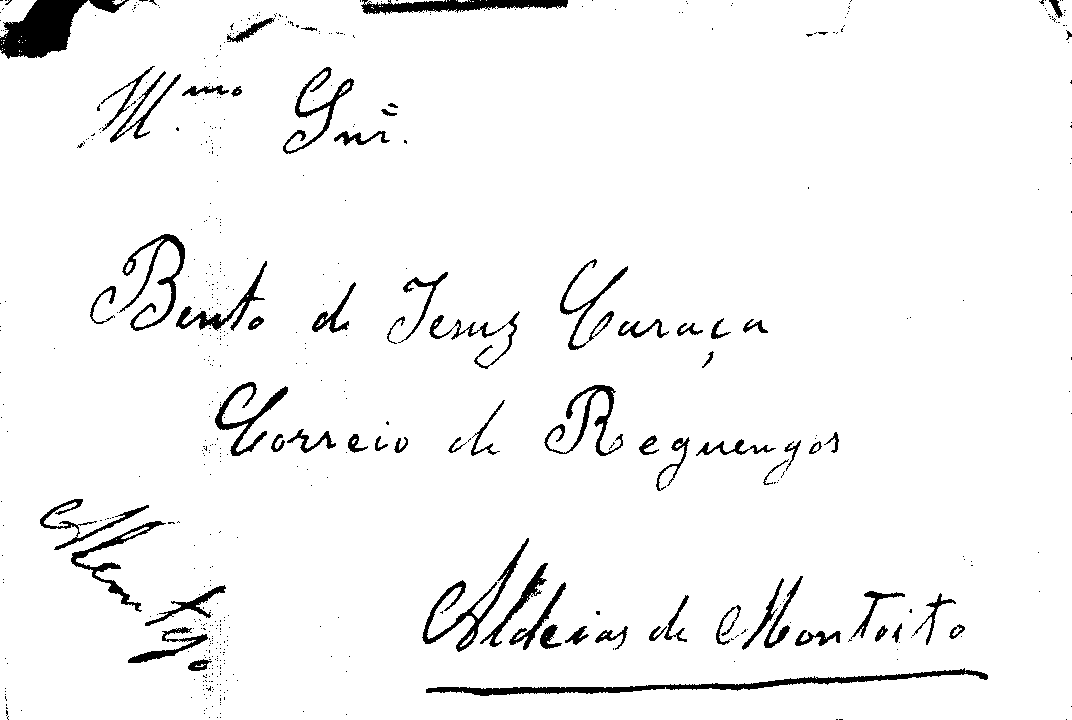 Illmo Snr.
Bento de Jesuz Caraça
Correio de Reguengos
Alemtejo
Aldeias de Montoito